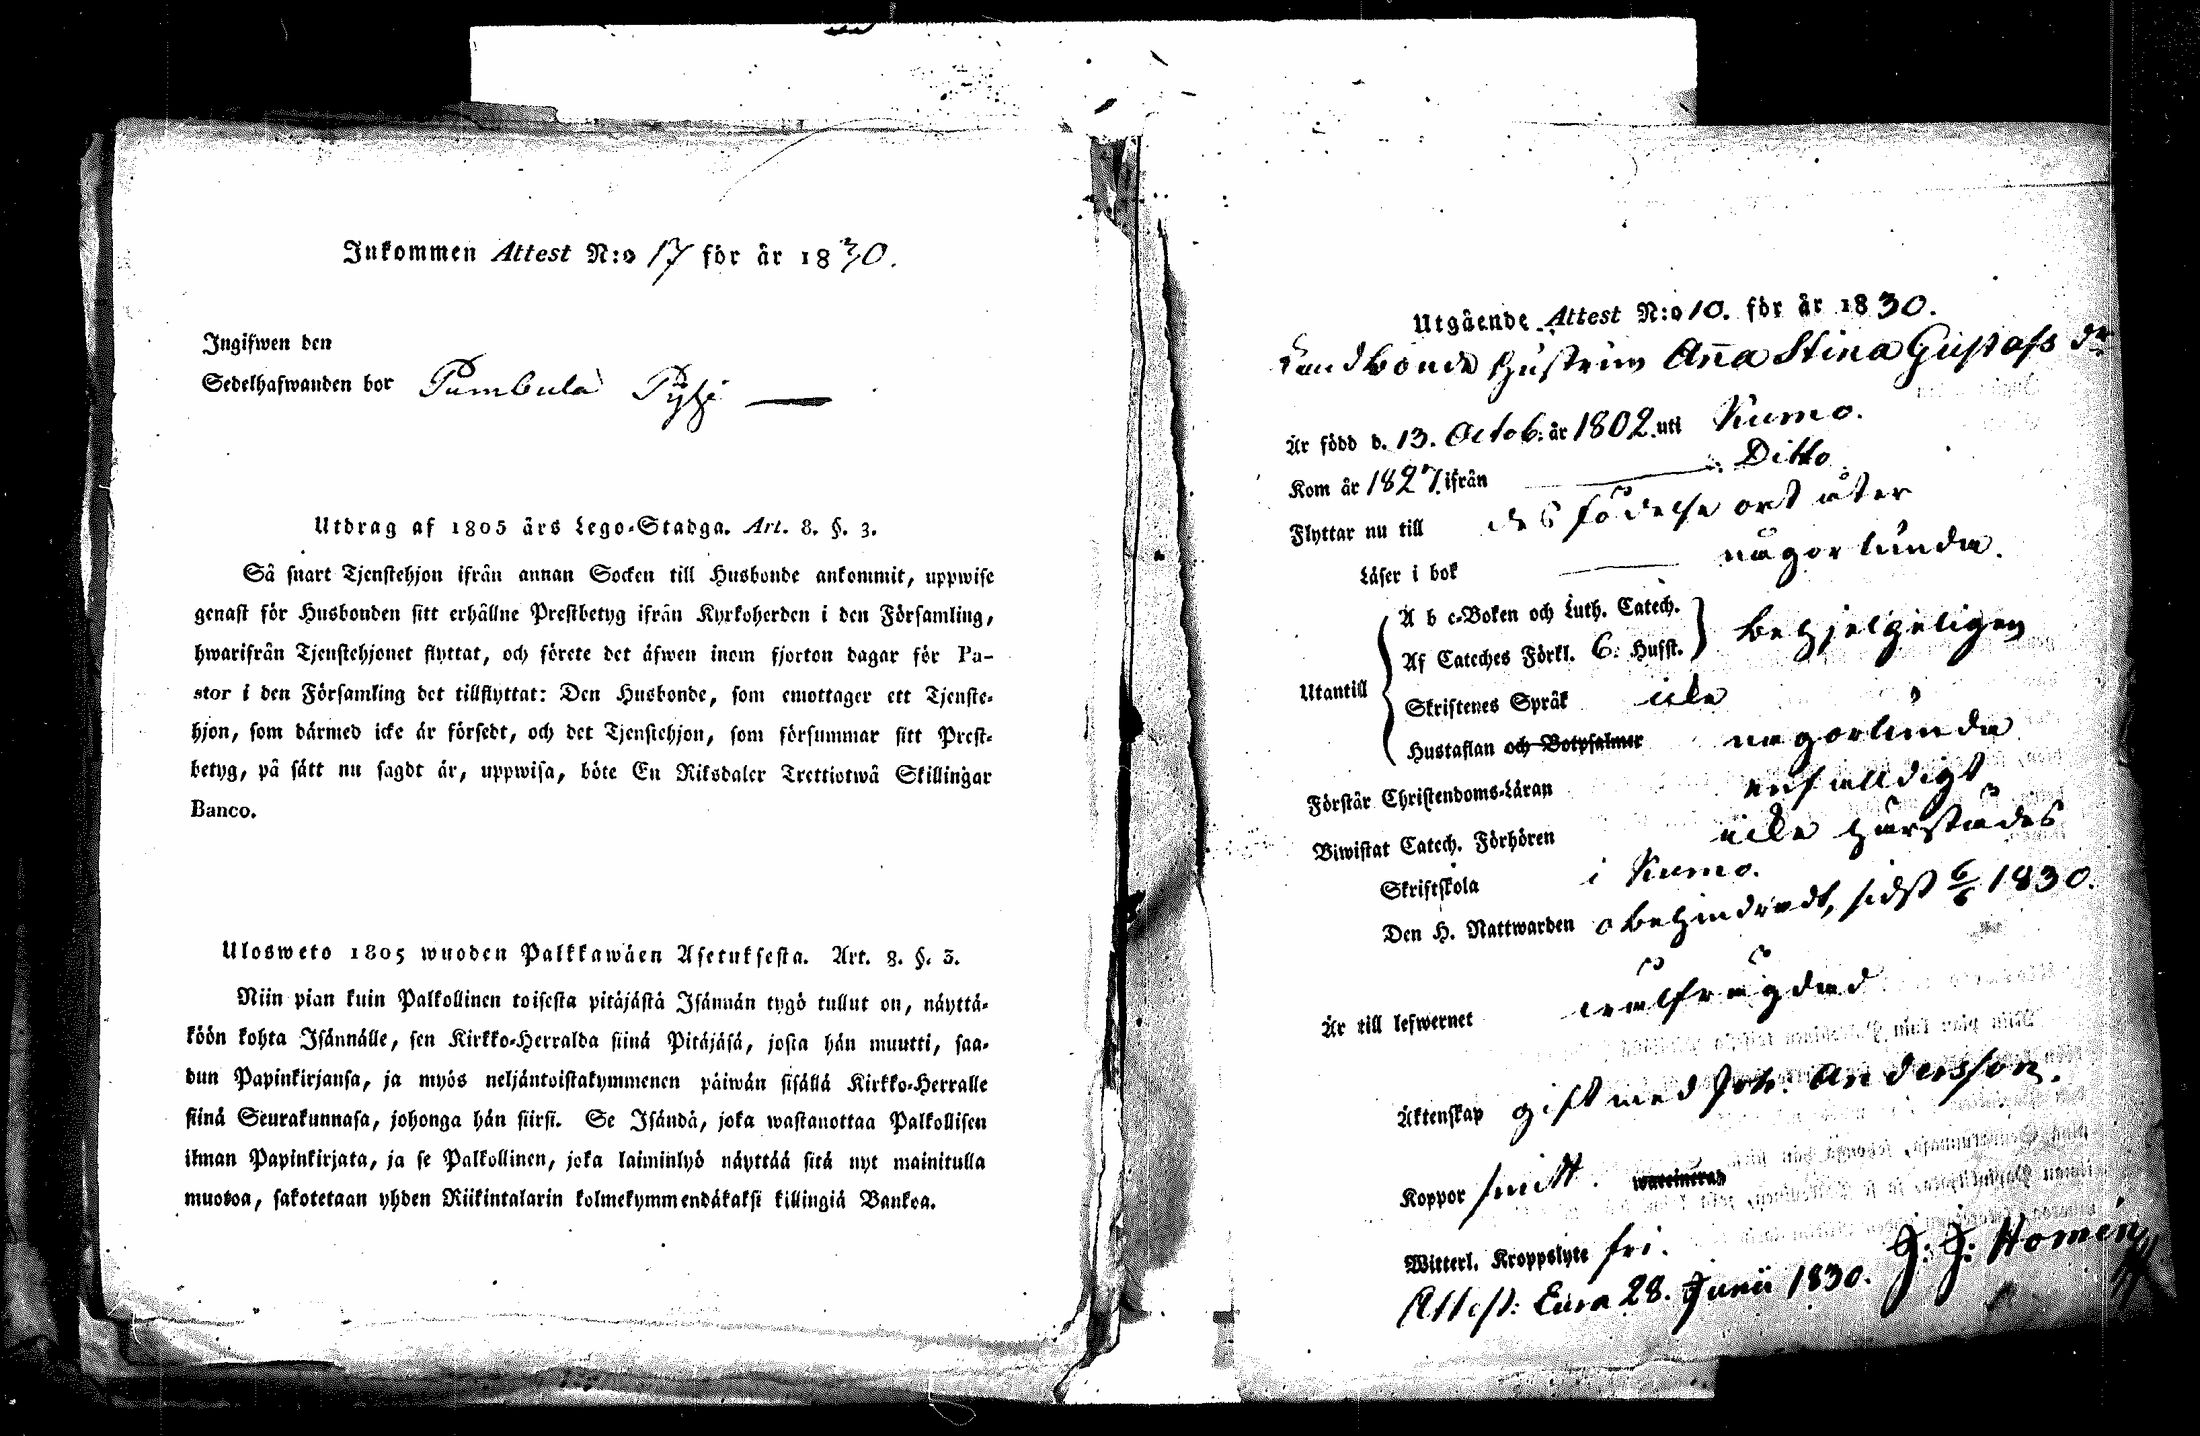 Inkommen Attest N:o 17 för år 1830.
Ingifwen den
Sedelhafwanden bor Pumbula Pyhi
Utdrag af 1805 års Lego-Stadga. Art. 8. §. 3.
Så snart Tjenstehjon ifrån annan Socken till Husbonde ankommit, uppwise
genast för Husbonden sitt erhållne Prestbetyg ifrån Kyrkoherden i den Församling,
hwarifrån Tjenstehjonet flyttat, och förete det äfwen inom fjorton dagar för Pa-
stor i den Församling det tillflyttat: Den Husbonde, som emottager ett Tjenste-
hjon, som därmed icke är försedt, och det Tjenstehjon, som försummar sitt Prest-
betyg, på sätt nu sagdt är, uppwisa, böte En Riksdaler Trettiotwå Skillingar
Banco.
Ulosweto 1805 wuoden Palkkawäen Asetuksesta. Art. 8. §. 3.
Niin pian kuin Palkollinen toisesta pitäjästä Isännän tygö tullut on, näyttä-
köön kohta Isännälle, sen Kirkko-Herralda siinä Pitäjäsä, josta hän muutti, saa-
dun Papinkirjansa, ja myös neljäntoistakymmenen päiwän sisällä Kirkko-Herralle
siinä Seurakunnasa, johonga hän siirsi. Se Isändä, joka wastanottaa Palkollisen
ilman Papinkirjata, ja se Palkollinen, joka laiminlyö näyttää sitä nyt mainitulla
muotoa, sakotetaan yhden Riikintalarin kolmekymmendäkaksi killingiä Bankoa.
Utgående Attest N:o 10. för år 1830.
Landbonde Hustrun Anna Stina Gustafs dr
Är född d. 13. Octob: år 1802. uti Kumo.
Kom år 1827. ifrån Ditto
Flyttar nu till des födelse ort åter
Läser i bok någorlunda.
A b c-Boken och Luth. Catech.
Af Cateches Förkl. 6: Hufst. behjelpeligen
Utantill
Skriftenes Språk icke
Hustaflan och Botpsalmer någorlunda
Förstår Christendoms-Läran enfalldigt
Biwistat Catech. Förhören icke härstädes
Skriftskola i Kumo.
Den H. Nattwarden obehindradt, sidst 6/6 1830.
Är till lefwernet wälfrägdad
Äktenskap gift med Joh: Andersson.
Koppor smitt. waccinerad
Witterl. Kroppslyte fri.
Attest: Eura 28. Junii 1830.